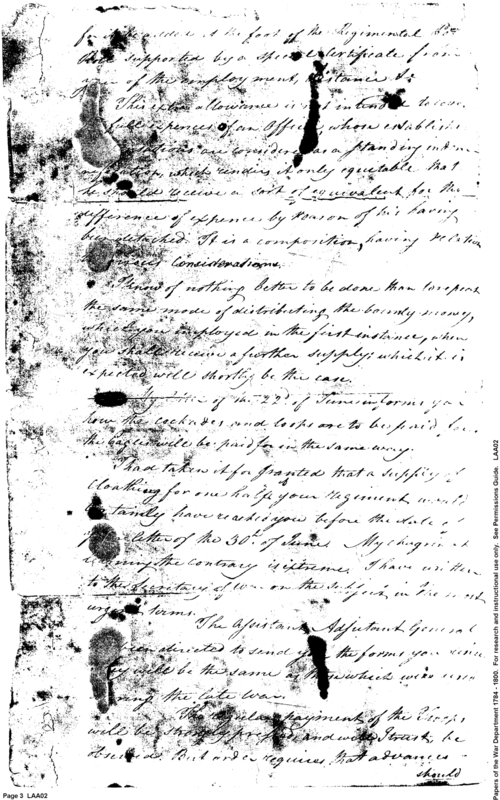 at the foot of the Regimental
supported by a certificate from
of the employment, distance &c
This extra allowance is not intended to cover
full expences of an Officer whose establishe
are considered as a standing
which renders it only equitable that
he should receive a sort of equivalent for the
difference of expence by reason of his having
been detached. It is a composition, having relation
Considerations.
I know of nothing better to be done than to repeat
the same mode of distributing the bounty money,
which you employed in the first instance, when
you shall receive a further supply: which it is
expected will shortly be the case.
My letter of the 22d of June informs you
how the cockades and loops are to be paid for
the Eagles will be paid for in the same way.
I had taken it for granted that a supply of
cloathing for one half your regiment would
certainly have reached you before the date of
letter of the 30th of June. My chagrin at
the contrary is extreme. I have written
to the Secretary of War on the subject in the most
urgent terms.
The Assistant Adjutant General
been directed to send you the forms you
will be the same as those which were
during the late War.
The regular payment of the Troops
will be strongly pressed, and will I trust be
observed. But order requires that advances
should
Page 3 LAA02
Papers of the War Department 1784 - 1800. For research and instructional use only. See Permissions Guide. LAA02